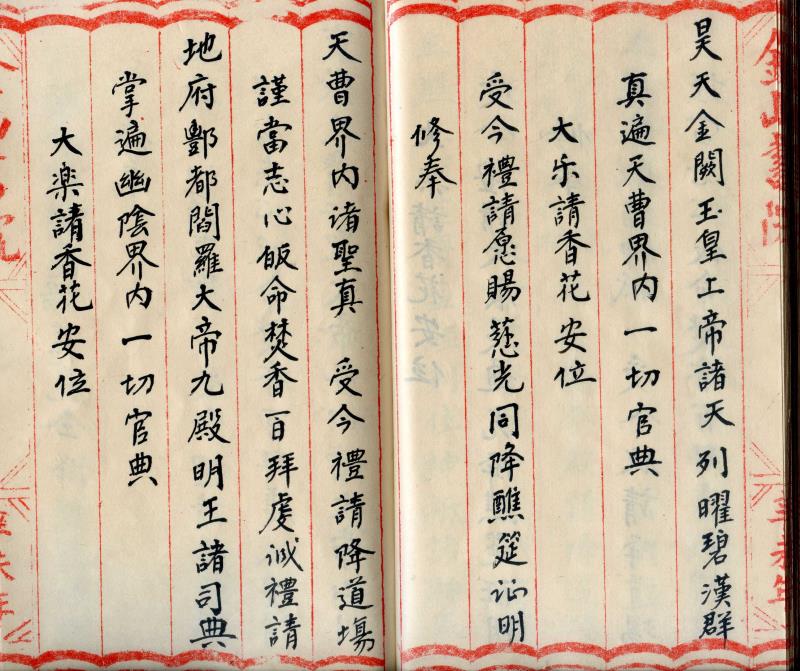 金山書院
辛未年
昊天金闕玉皇上帝諸天列曜碧漢群
真遍天曹界内一切官典
大乐請香花安位
受今禮請愿賜慈光同降醮筵证明
修奉
天曹界内诸聖真 受今禮請降道塲
謹當志心皈命焚香百拜虔诚禮請
地府酆都閻羅大帝九殿明王諸司典
掌遍幽陰界内一切官典
大楽請香花安位